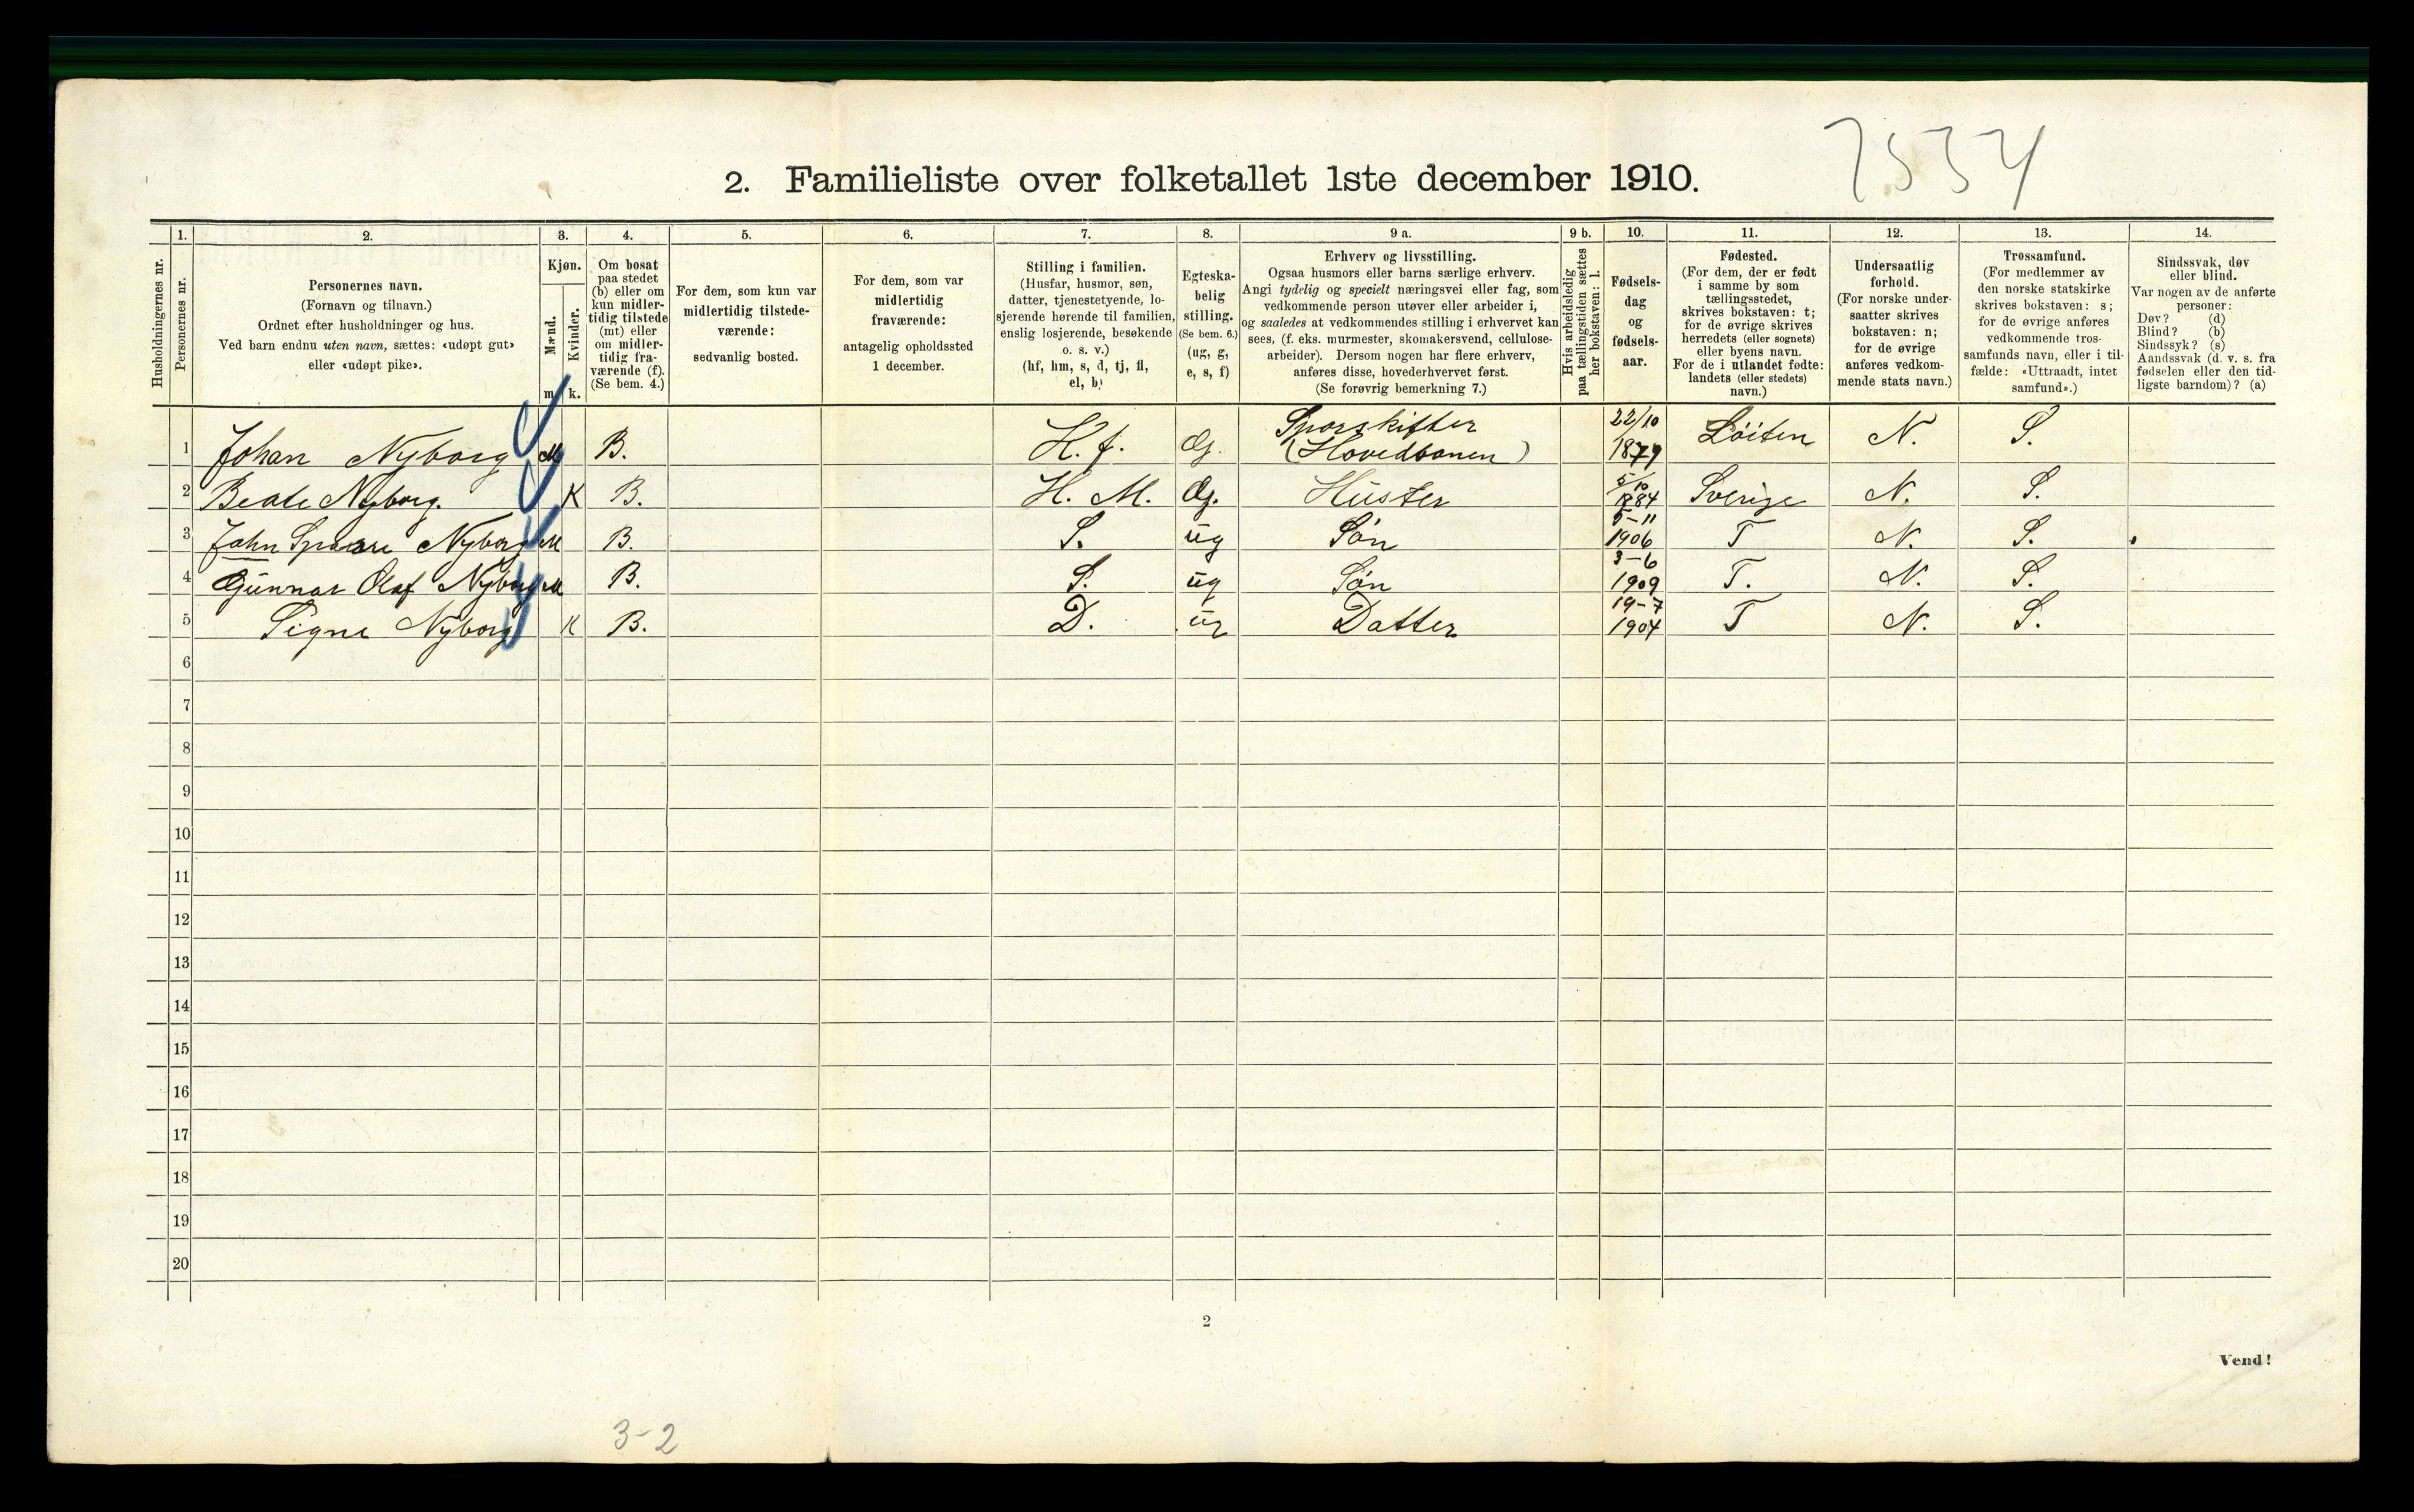 7534
2. Familieliste over folketallet 1ste december 1910.
Husholdningernes nr.
1.
Personernes nr.
2.
Personernes navn.
(Fornavn og tilnavn.)
Ordnet efter husholdninger og hus.
Ved barn endnu uten navn, sættes: «udøpt gut»
eller «udøpt pike».
3.
Kjøn.
Mænd.
Kvinder.
m. k.
4.
Om bosat
paa stedet
(b) eller om
kun midler-
tidig tilstede
(mt) eller
om midler-
tidig fra-
værende (f).
(Se bem. 4.)
5.
For dem, som kun var
midlertidig tilstede-
værende:
sedvanlig bosted.
6.
For dem, som var
midlertidig
fraværende:
antagelig opholdssted
1 december.
7.
Stilling i familien.
(Husfar, husmor, søn,
datter, tjenestetyende, lo-
sjerende hørende til familien,
enslig losjerende, besøkende
o. s. v.)
(hf, hm, s, d, tj, fl,
el, b)
8.
Egteska-
belig
stilling.
(Se bem. 6.)
(ug, g,
e, s, f)
9 a.
Erhverv og livsstilling.
Ogsaa husmors eller barns særlige erhverv.
Angi tydelig og specielt næringsvei eller fag, som
vedkommende person utøver eller arbeider i,
og saaledes at vedkommendes stilling i erhvervet kan
sees, (f. eks. murmester, skomakersvend, cellulose-
arbeider). Dersom nogen har flere erhverv,
anføres disse, hovederhvervet først.
(Se forøvrig bemerkning 7.)
9 b.
Hvis arbeidsledig
paa tællingstiden sættes
her bokstaven: l.
10.
Fødsels-
dag
og
fødsels-
aar.
11.
Fødested.
(For dem, der er født
i samme by som
tællingsstedet,
skrives bokstaven: t;
for de øvrige skrives
herredets (eller sognets)
eller byens navn.
For de i utlandet fødte:
landets (eller stedets)
navn.)
12.
Undersaatlig
forhold.
(For norske under-
saatter skrives
bokstaven: n;
for de øvrige
anføres vedkom-
mende stats navn.)
13.
Trossamfund.
(For medlemmer av
den norske statskirke
skrives bokstaven: s;
for de øvrige anføres
vedkommende tros-
samfunds navn, eller i til-
fælde: «Uttraadt, intet
samfund».)
14.
Sindssvak, døv
eller blind.
Var nogen av de anførte
personer:
Døv? (d)
Blind? (b)
Sindssyk? (s)
Aandssvak (d. v. s. fra
fødselen eller den tid-
ligste barndom)? (a)
1 Johan Nyborg M B. H. f. G. Sporskifter (Hovedbanen) 22/10 1879 Löiten N. S.
2 Beate Nyborg. K B. H. M. G. Huster 5/10 1884 Sverige N. S.
3 John Nyborg M B. S. ug Søn 5-11 1906 T N. S.
4 Gunnar Olaf Nyborg M B. S. ug Søn 3-6 1909 T. N. S.
5 Signe Nyborg K B. D. ug Datter 19-7 1904 T N. S.
6
7
8
9
10
11
12
13
14
15
16
17
18
19
20
2
Vend!
3-2